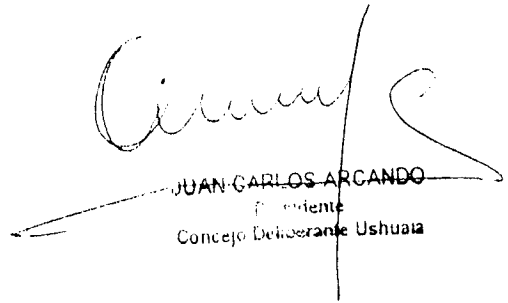 JUAN CARLOS ARCANDO
Presidente
Concejo Deliberante Ushuaia